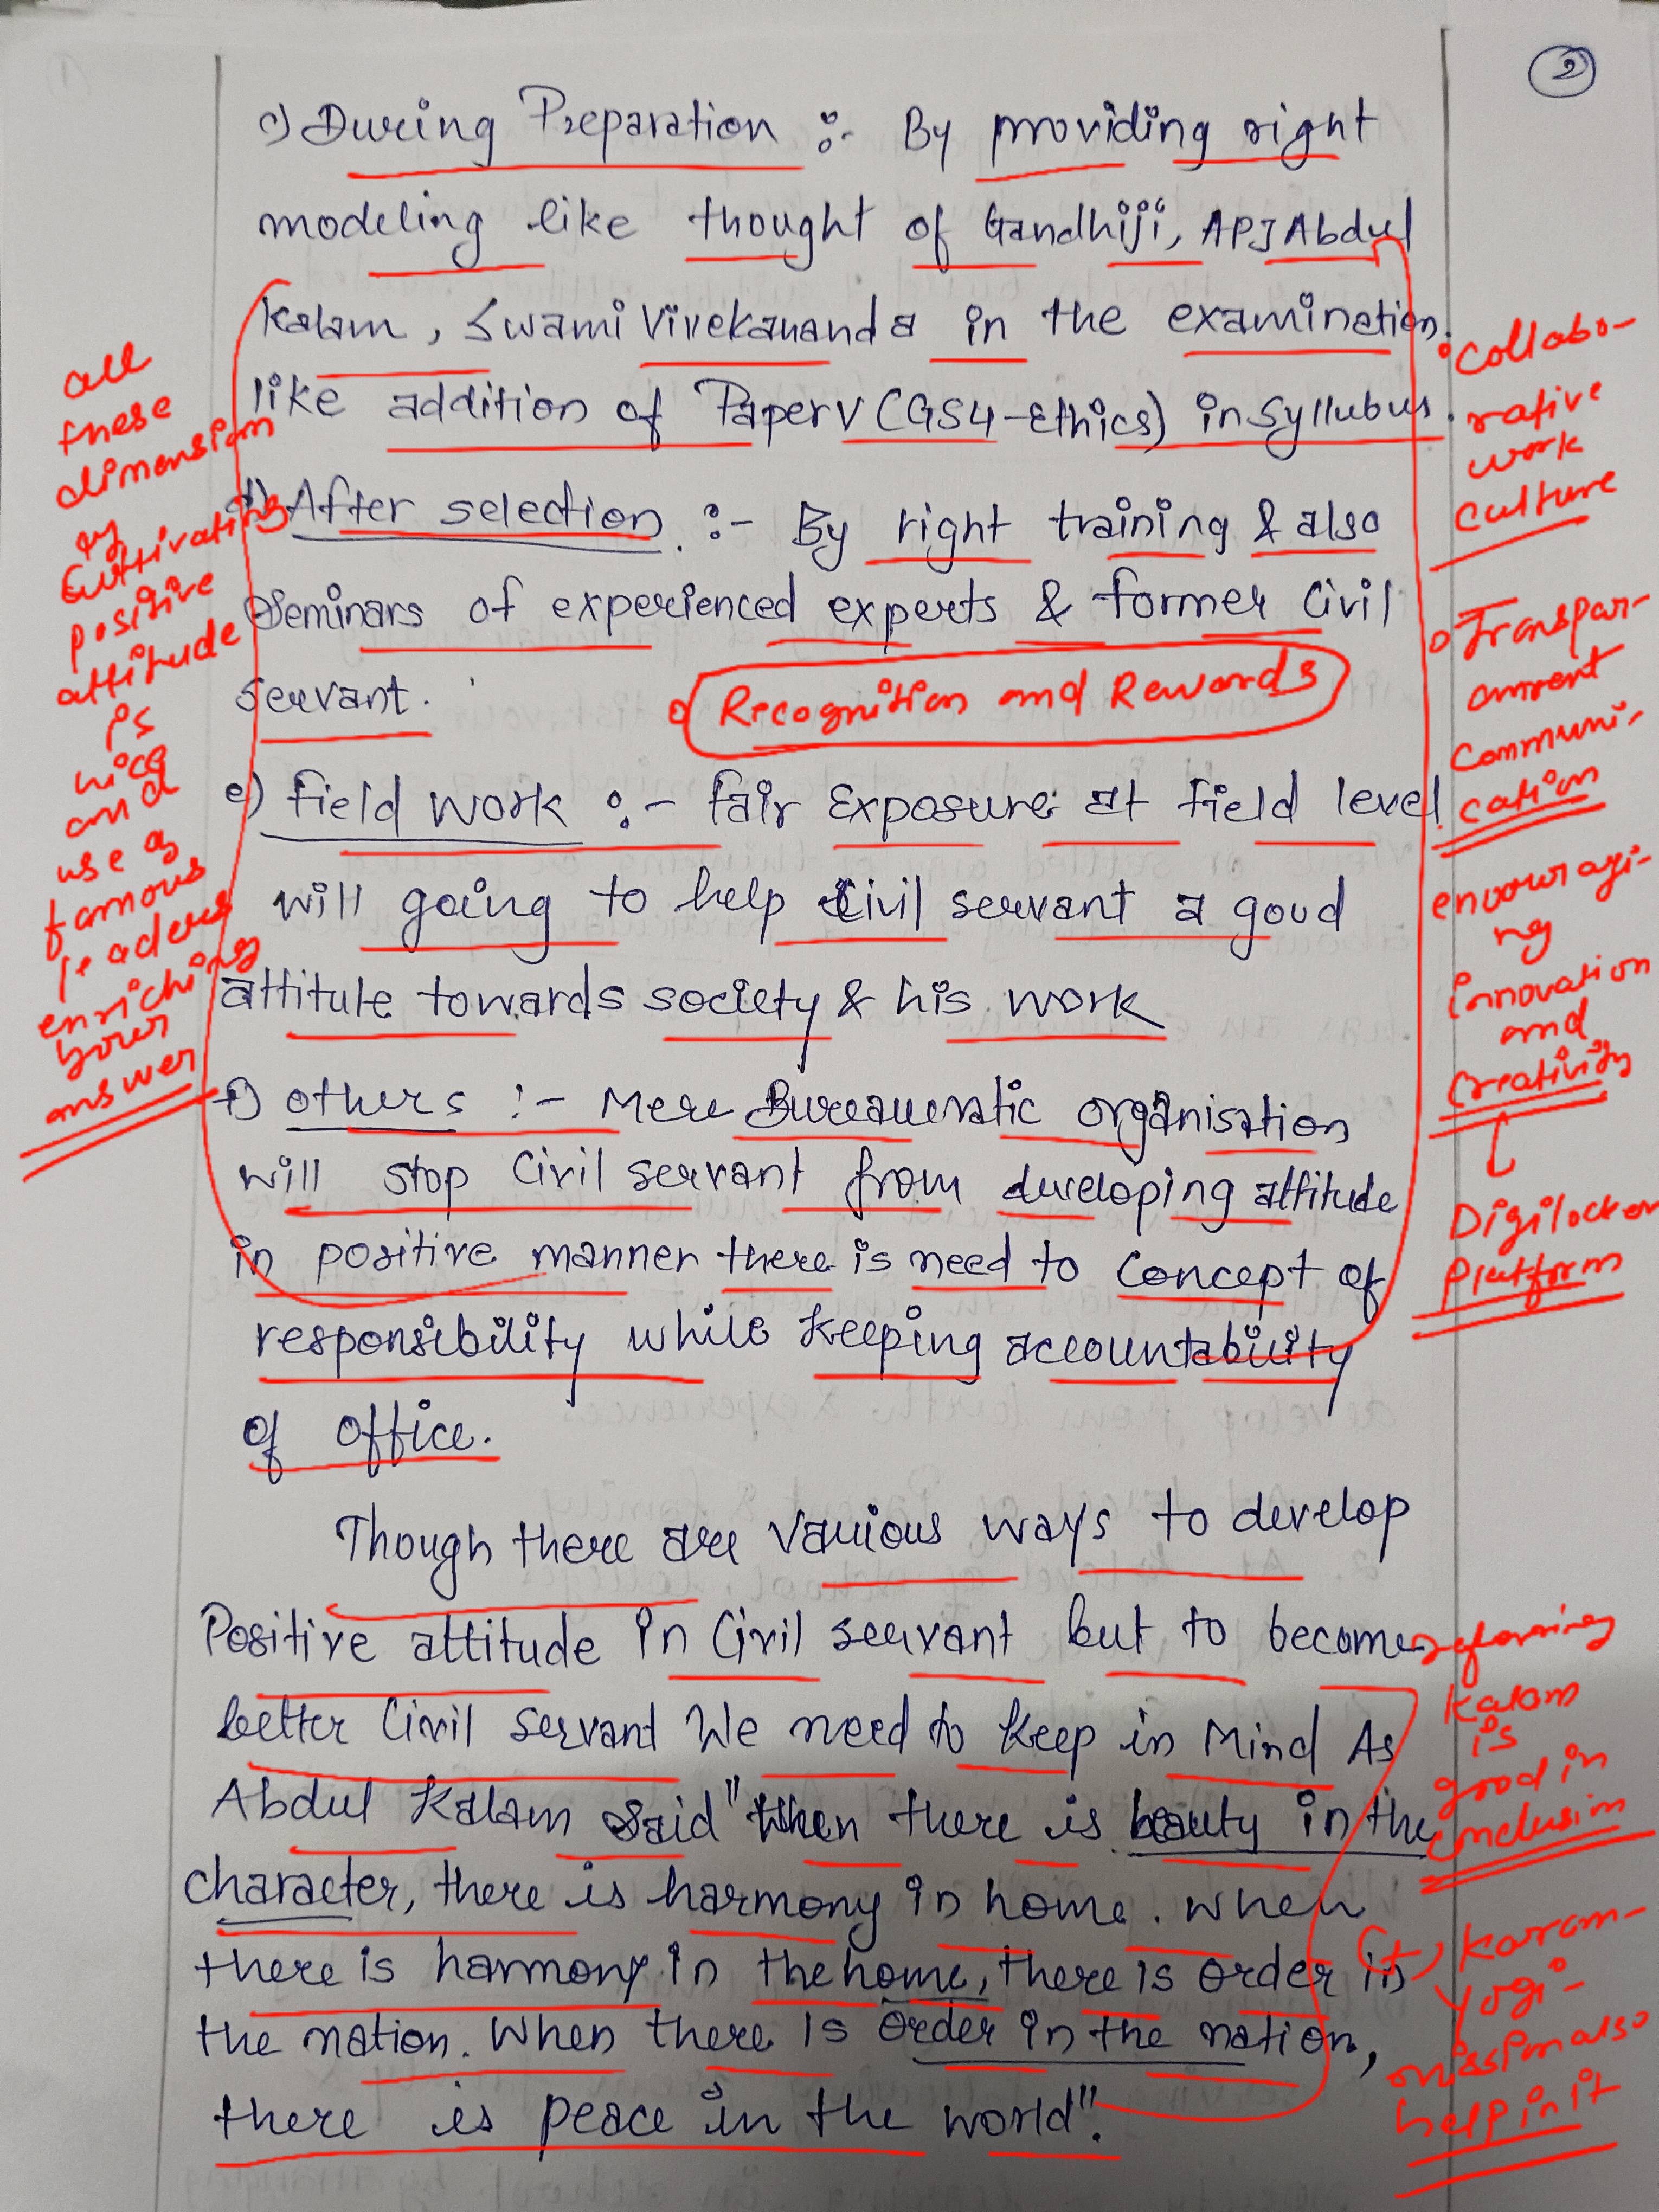 2
c) During Preparation :- By providing right
modeling like thought of Gandhiji, APJ Abdul
Kalam, Swami Vivekananda in the examination.
like addition of Paper V (GS4-Ethics) in Syllubus.
d) After selection :- By right training & also
Seminars of experienced experts & former Civil
servant.
o Recognition and Rewards
e) field work :- fair Exposure at field level
will going to help Civil servant a goud
attitute towards society & his work
f) others :- Mere Bureaucratic organisation
will stop Civil servant from developing attitude
in positive manner there is need to Concept of
responsibility while keeping accountability
of office.
Though there are Various ways to develop
Positive attitude in Civil servant but to become
better Civil servant We need to keep in Mind As
Abdul Kalam said "When there is beauty in the
character, there is harmony in home. when
there is harmony in the home, there is order in
the nation. When there is order in the nation,
there is peace in the world".
all
these
dimension
of
Cultivating
positive
attitude
is
nice
and
use of
famous
leaders
enriching
your
answer
o Collabo-
rative
work
culture
o Transpar-
communi-
cation
encouragi-
ng
innovation
and
Creativity
Digilocker
Platform
kalam
is
good in
conclusion
(+) Karam-
yogi-
mission also
help in it